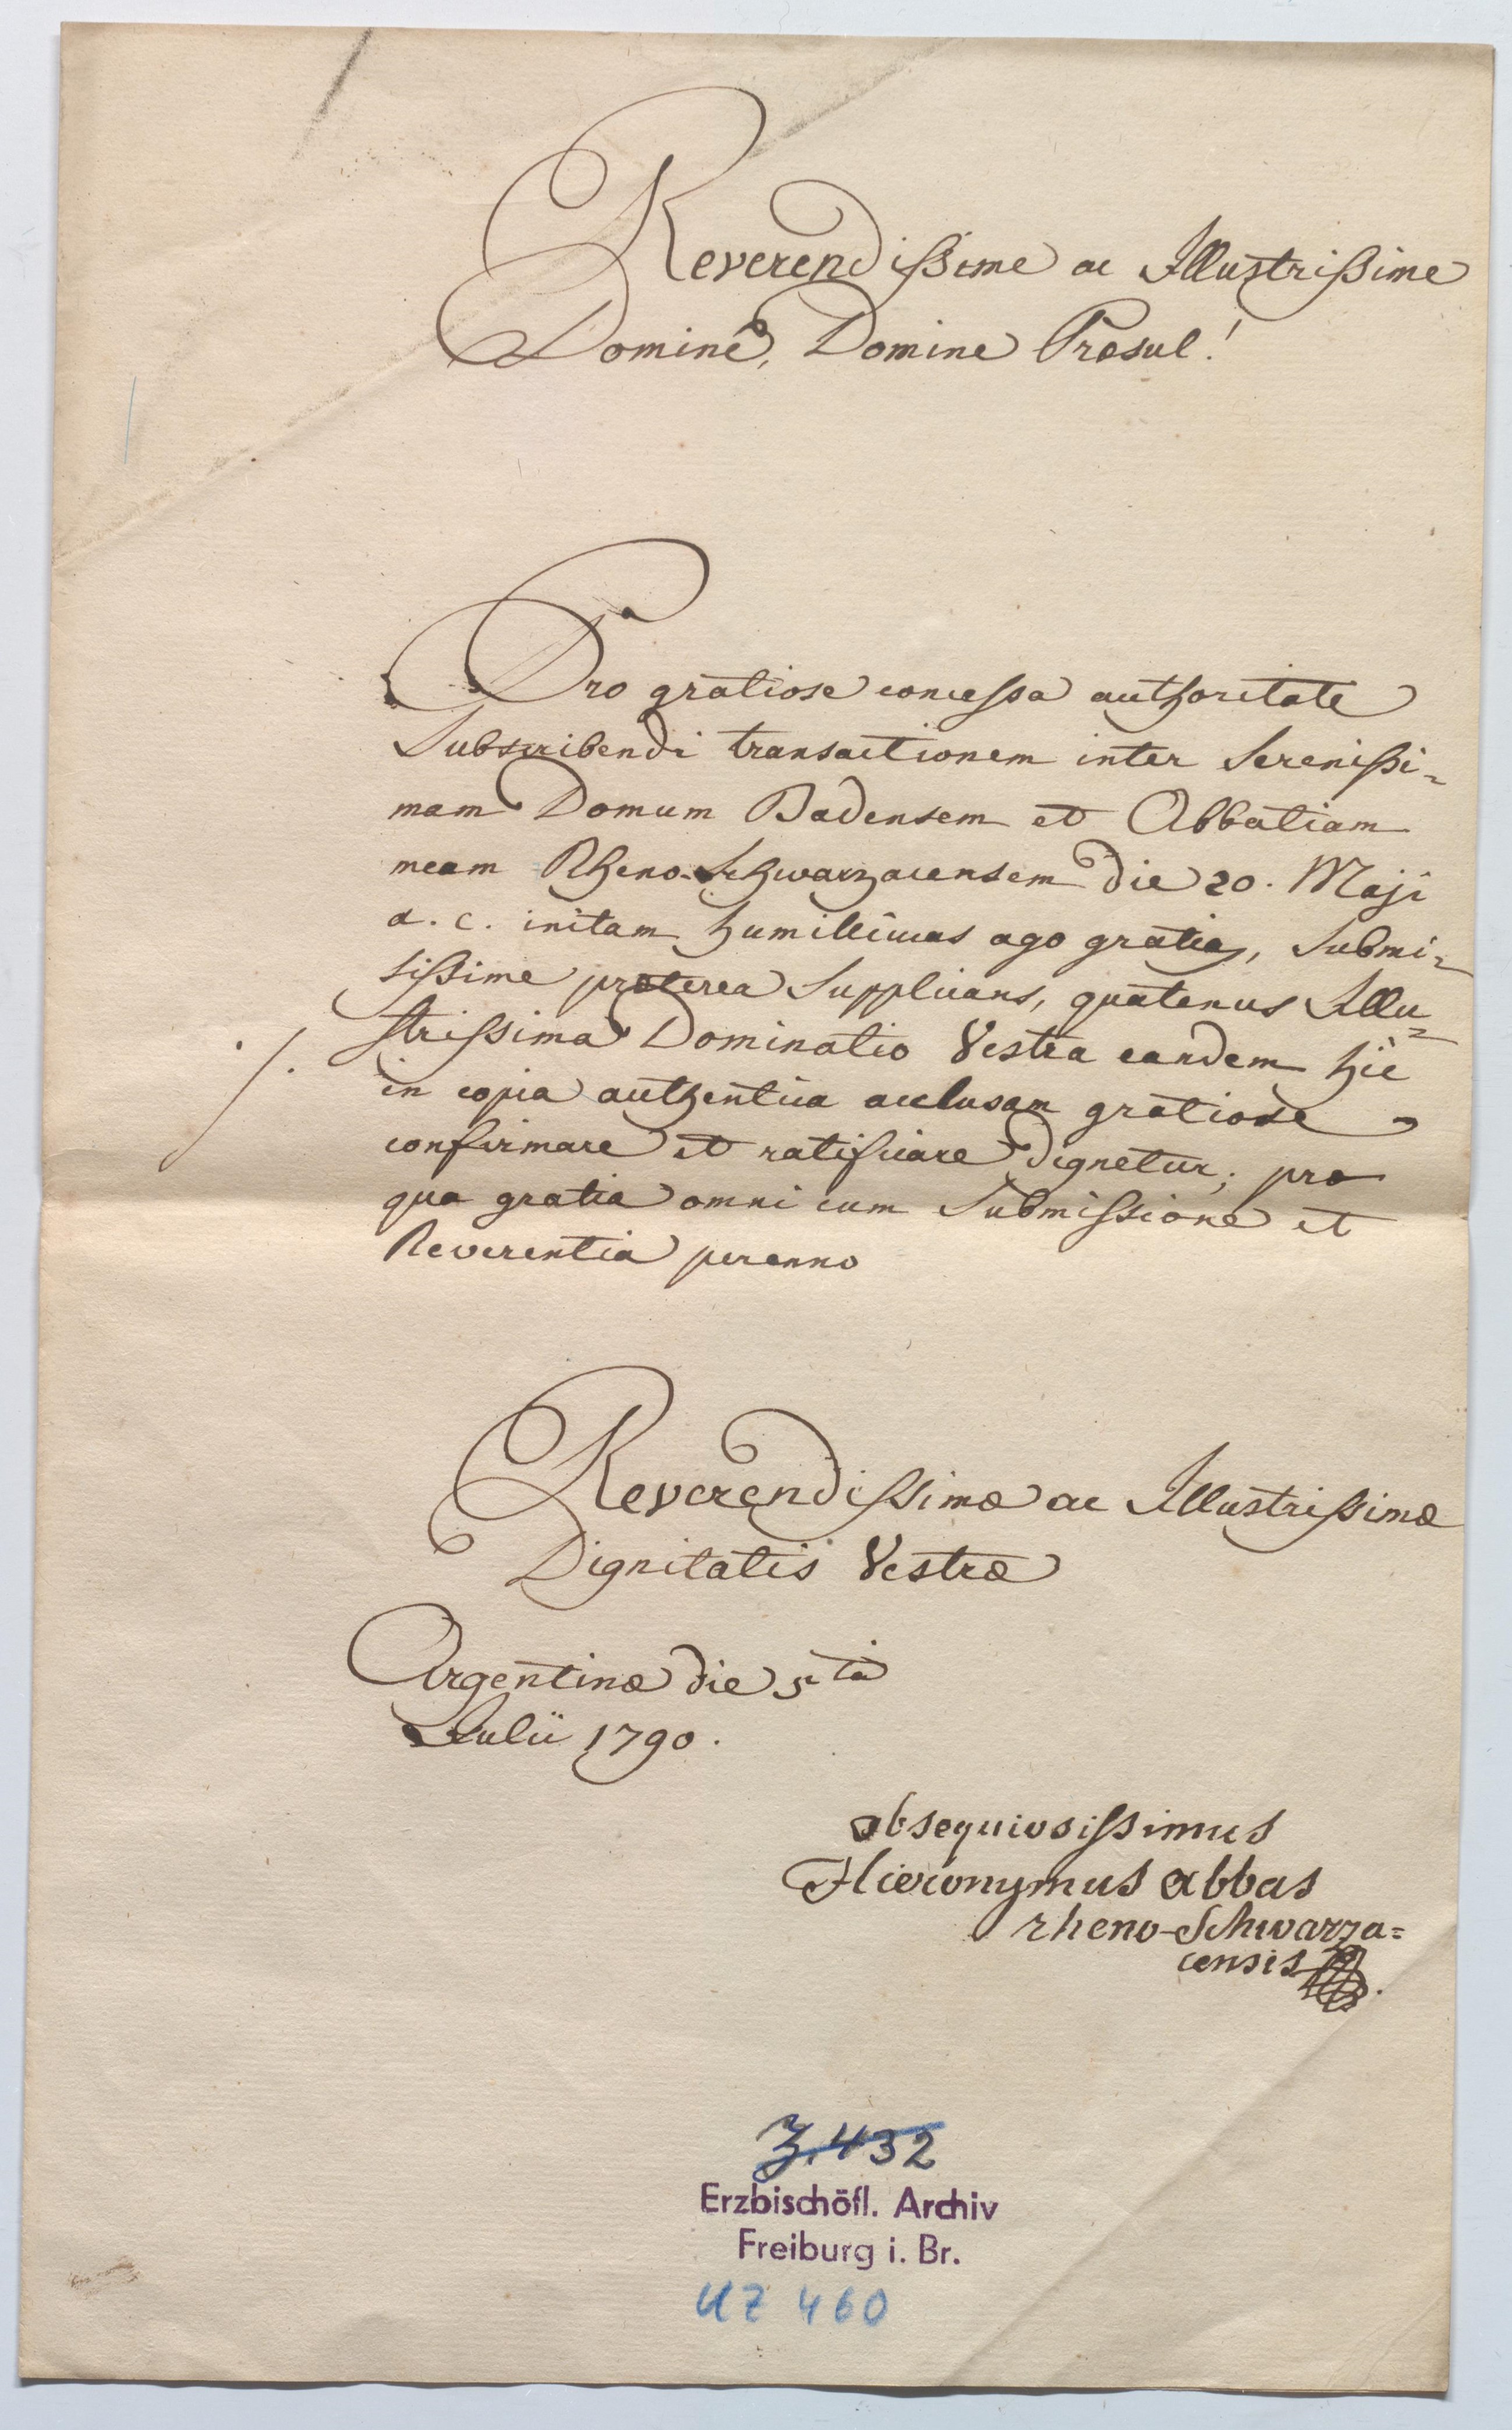 Reverendissime ac Illustrissime
Domine, Domine Præsul!
Pro gratiose concessa authoritate
Subscribendi transactionem inter Serenissi=
mam Domum Badensem et Abbatiam
meam Rheno-Schwarzacensem die 20. Maji
a. c. initam humillimas ago gratias, Submi=
sissime præterea Supplicans, quatenus Illu=
strissima Dominatio Vestra eandem hîc
./. in copia authentica acclusam gratiose
confirmare et ratificare dignetur; pro
qua gratia omni cum Submissione et
Reverentia perenno
Reverendissimæ ac Illustrissimæ
Dignitatis Vestræ
Argentinæ die 5ta
Julii 1790.
obsequiosissimus
Hieronymus abbas
rheno-Schwarza=
censis
Z. 432
Erzbischöfl. Archiv
Freiburg i. Br.
UZ 460